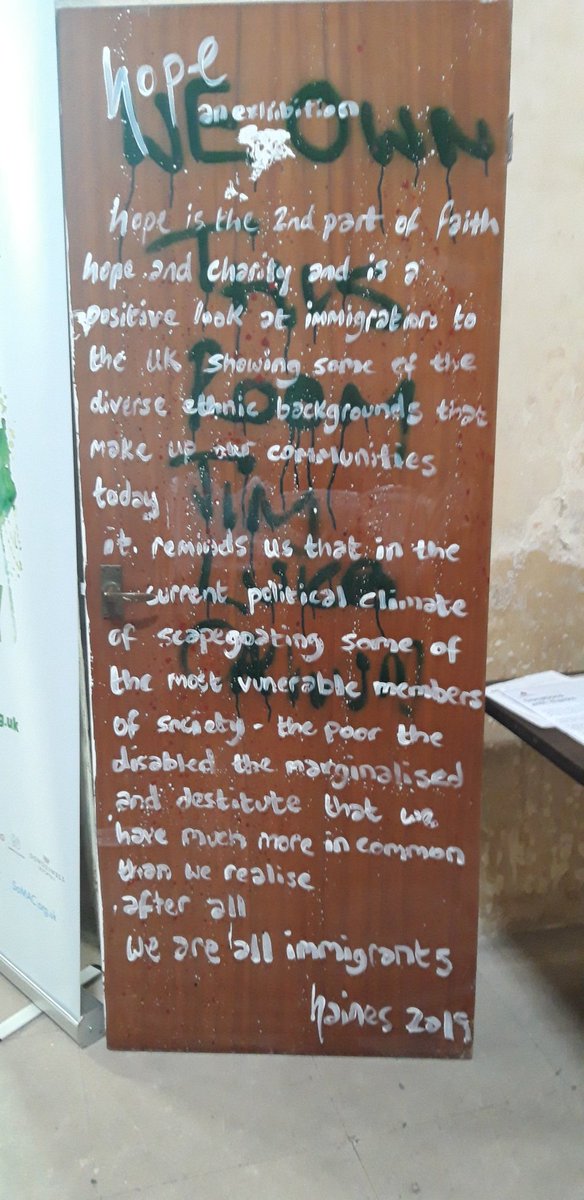 hope
an exhibition
WE OWN
hope is the 2nd part of faith
hope and charity and is a
positive look at immigration to
the UK showing some of the
diverse ethnic backgrounds that
make up our communities
today
it reminds us that in the
current political climate
of scapegoating some of
the most vunerable members
of society - the poor the
disabled the marginalised
and destitute that we
have much more in common
than we realise
after all
we are all immigrants
haines 2019
THIS
ROOM
TIM
LUKE
g.uk
SoMAC.org.uk